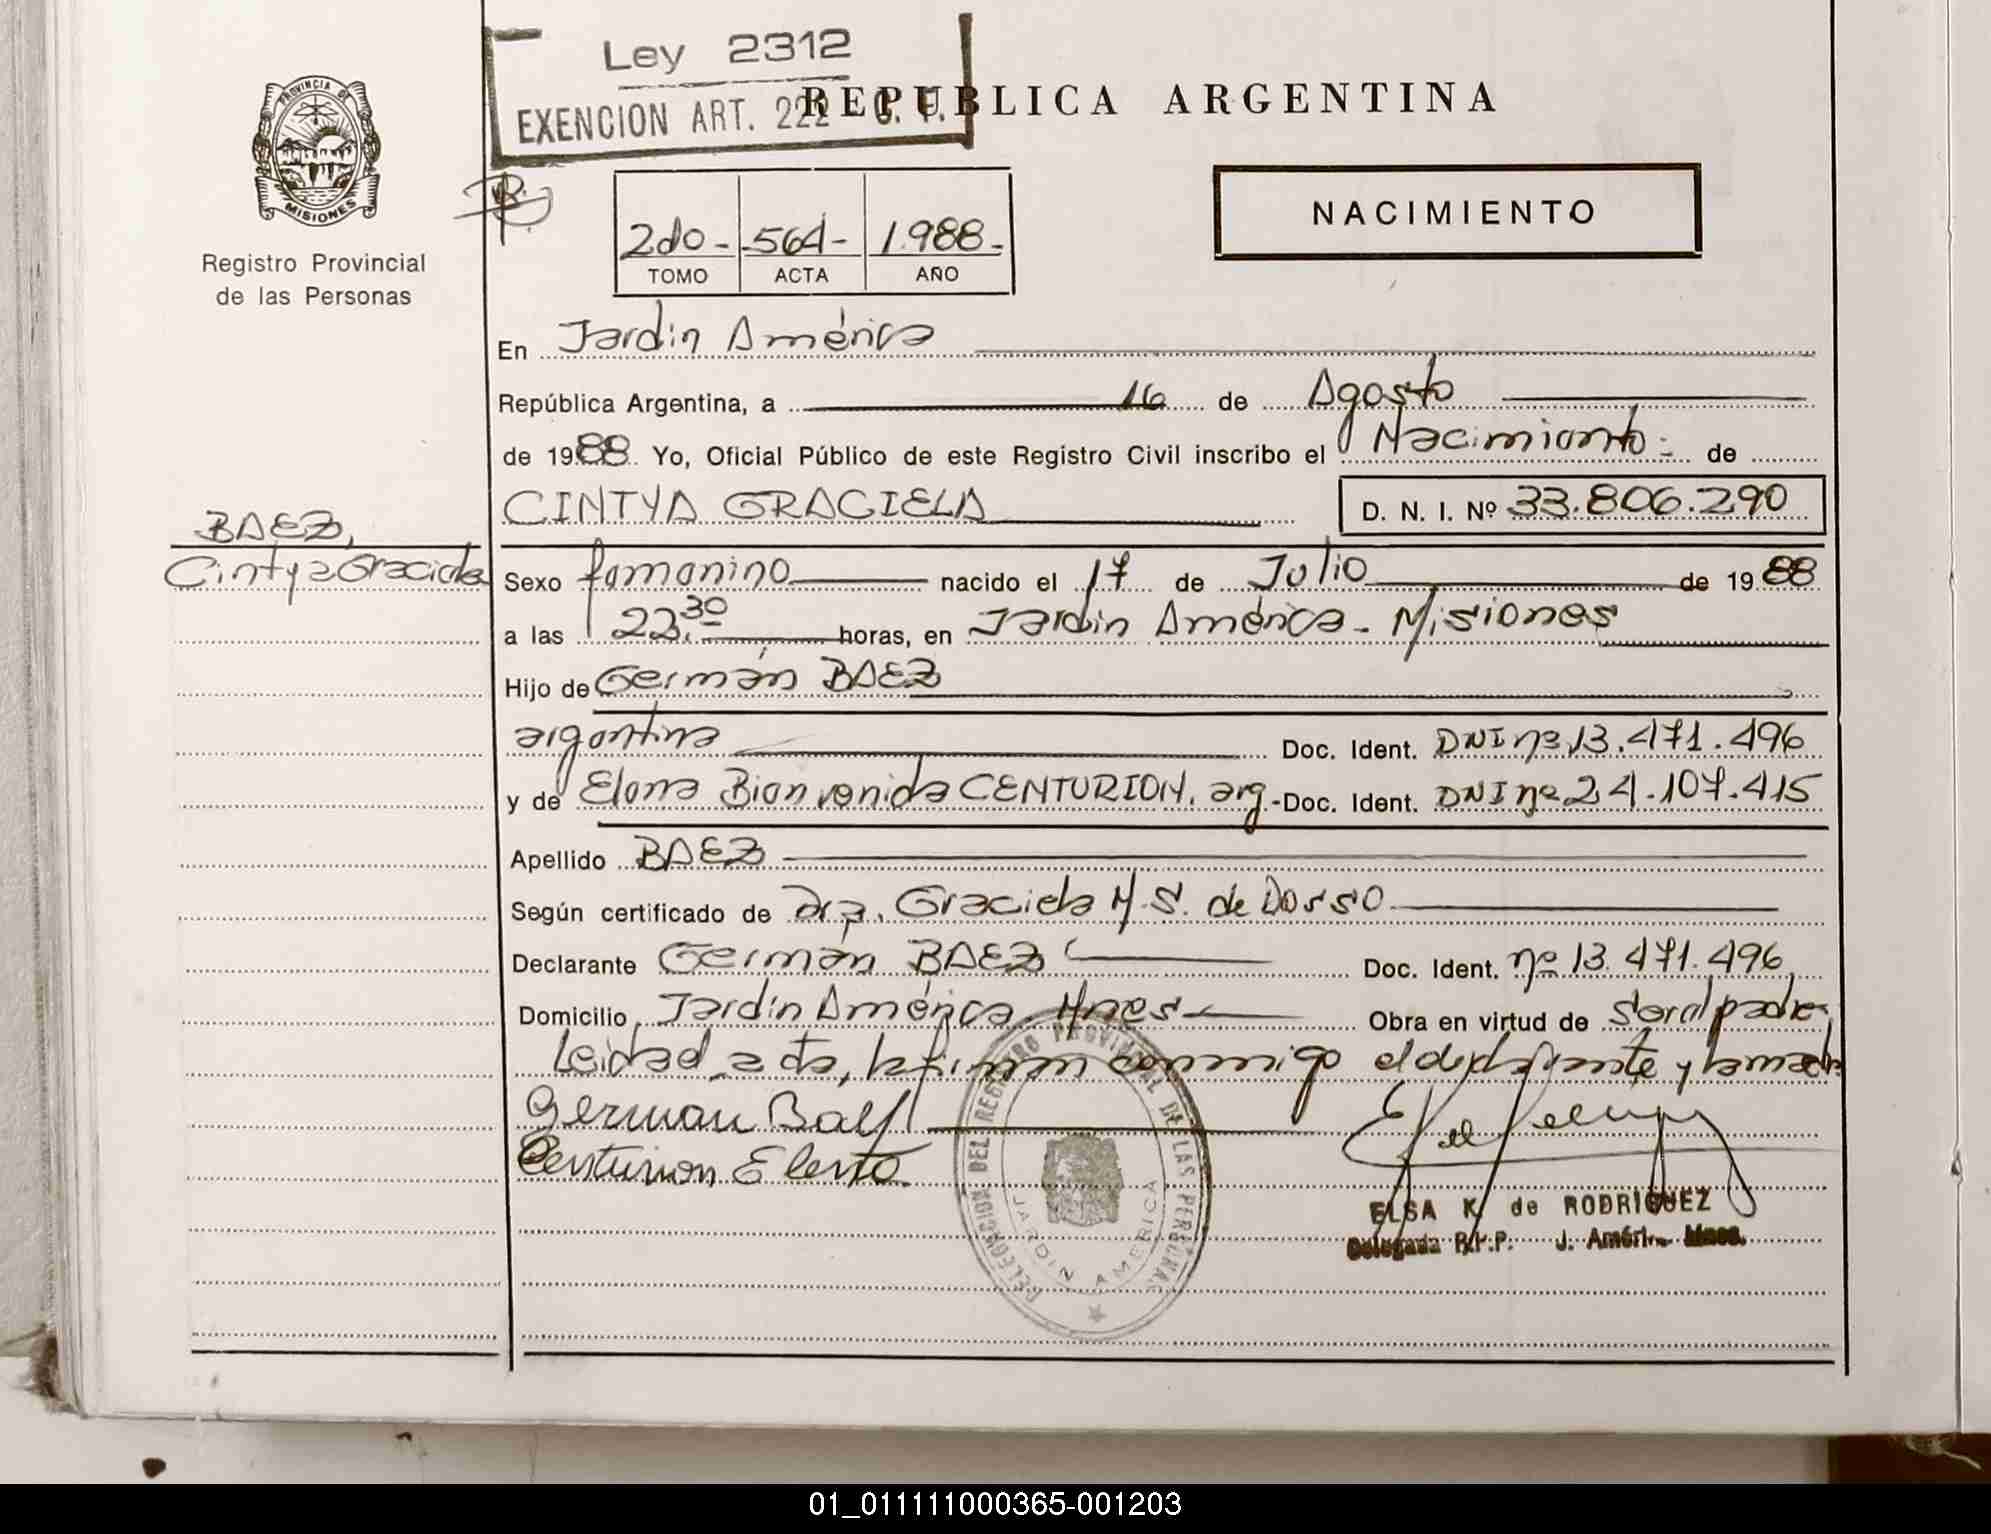 Ley 2312
EXENCION ART. 222 C. F.
REPUBLICA ARGENTINA
PROVINCIA DE
MISIONES
Registro Provincial
de las Personas
NACIMIENTO
2do - 564 - 1.988 -
TOMO ACTA AÑO
En Jardín América
República Argentina, a 16 de Agosto
de 1988 Yo, Oficial Público de este Registro Civil inscribo el Nacimiento - de
CINTYA GRACIELA D. N. I. Nº 33.806.290
BAEZ,
Cintya Graciela
Sexo femenino nacido el 17 de Julio de 1988
a las 22.30 horas, en Jardín América - Misiones
Hijo de Germán BAEZ
argentina Doc. Ident. DNI nº 13.471.496
y de Elena Bienvenida CENTURION, arg - Doc. Ident. DNI nº 24.107.415
Apellido BAEZ
Según certificado de Dra. Graciela M. S. de Dosso
Declarante Germán BAEZ Doc. Ident. nº 13.471.496
Domicilio Jardín América, Mnes - Obra en virtud de ser el padre
Leida el acta, la firman conmigo el declarante y la madre
German Baez
Centurion Elena
DELEGACION DEL REGISTRO PROVINCIAL DE LAS PERSONAS
JARDIN AMERICA
ELSA K. de RODRIGUEZ
Delegada R.P.P. J. América Mnes.
01_011111000365-001203